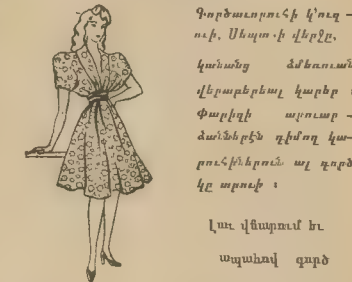 Գործաւորուհի կ'ուզ —
ուի. Սեպտ.ի վերջը.
կանանց ձմեռուան
վերաբերեալ կարեր
Փարիզի արուար —
ձաններէն դիմող կա—
րուհիներուն ալ գործ
կը տրուի ։
Լաւ վճարում եւ
ապահով գործ